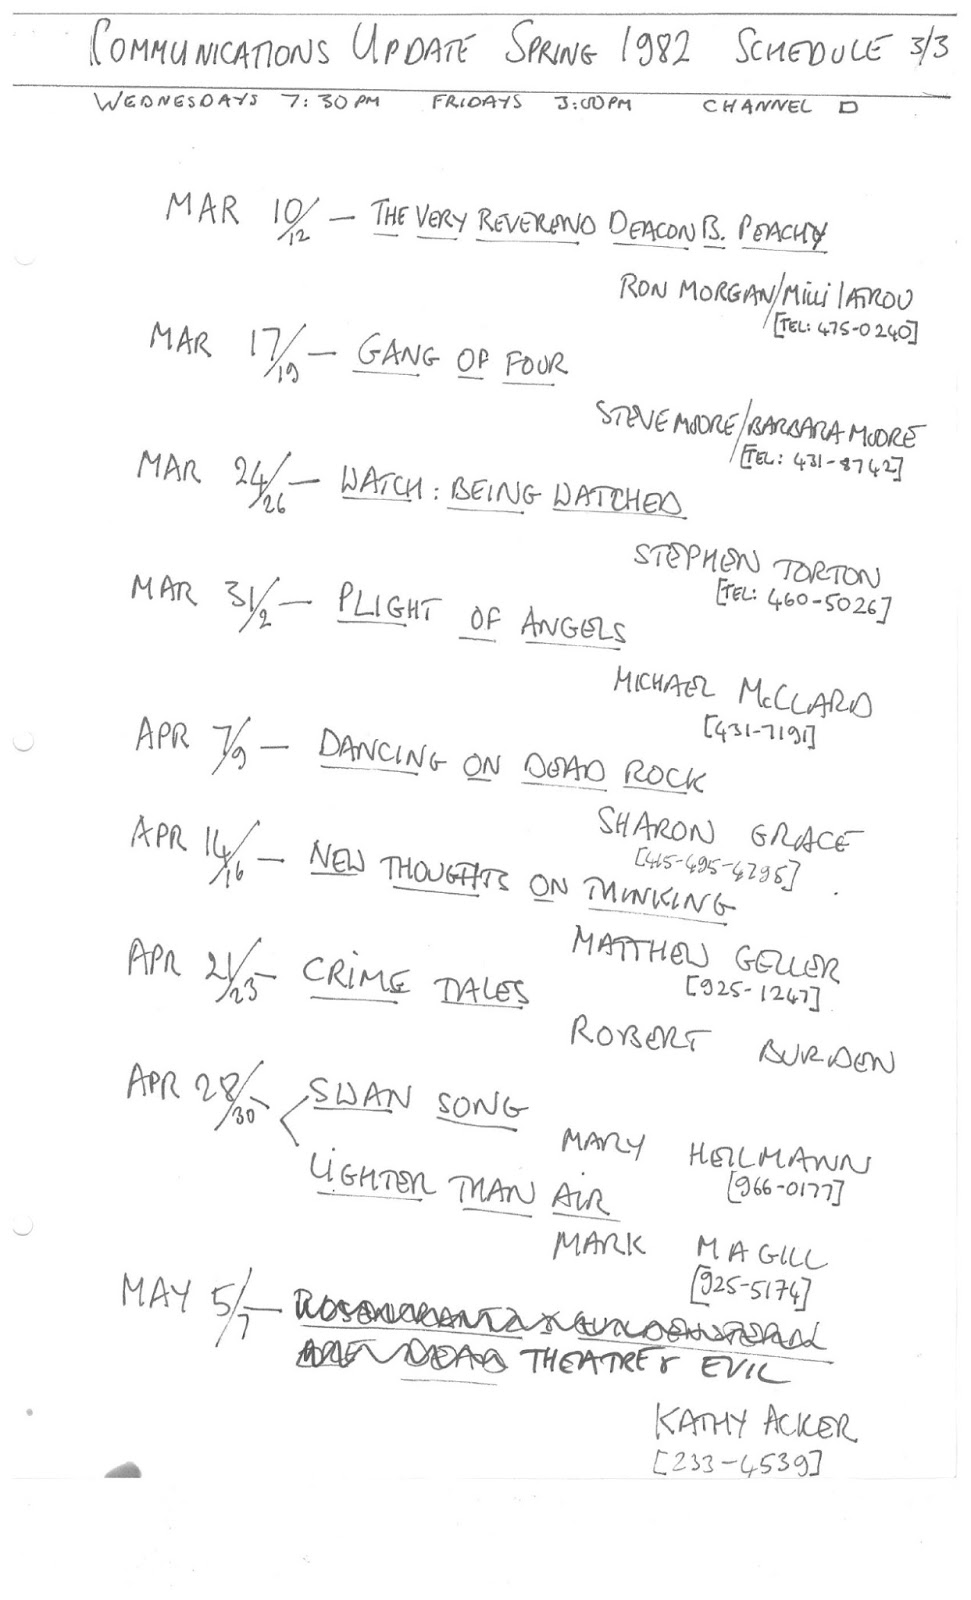 COMMUNICATIONS UPDATE SPRING 1982 SCHEDULE 3/3
WEDNESDAYS 7:30PM FRIDAYS 3:00PM CHANNEL D
MAR 10/12 — THE VERY REVEREND DEACON B. PEACHY
RON MORGAN/Milli IATROU
[TEL: 475-0240]
MAR 17/19 — GANG OF FOUR
STEVE MOORE/BARBARA MOORE
[TEL: 431-8742]
MAR 24/26 — WATCH: BEING WATCHED
STEPHEN TORTON
[TEL: 460-5026]
MAR 31/2 — PLIGHT OF ANGELS
MICHAEL McCLARD
[431-7191]
APR 7/9 — DANCING ON DEAD ROCK
SHARON GRACE
[415-495-4795]
APR 14/16 — NEW THOUGHTS ON THINKING
MATTHEW GELLER
[925-1247]
APR 21/23 — CRIME TALES
ROBERT BURDEN
APR 28/30 — SWAN SONG
MARY HEILMANN
[966-0177]
LIGHTER THAN AIR
MARK MAGILL
[925-5174]
MAY 5/7 — ROSENCRANTZ & GUILDENSTERN
ARE DEAD THEATRE & EVIL
KATHY ACKER
[233-4539]